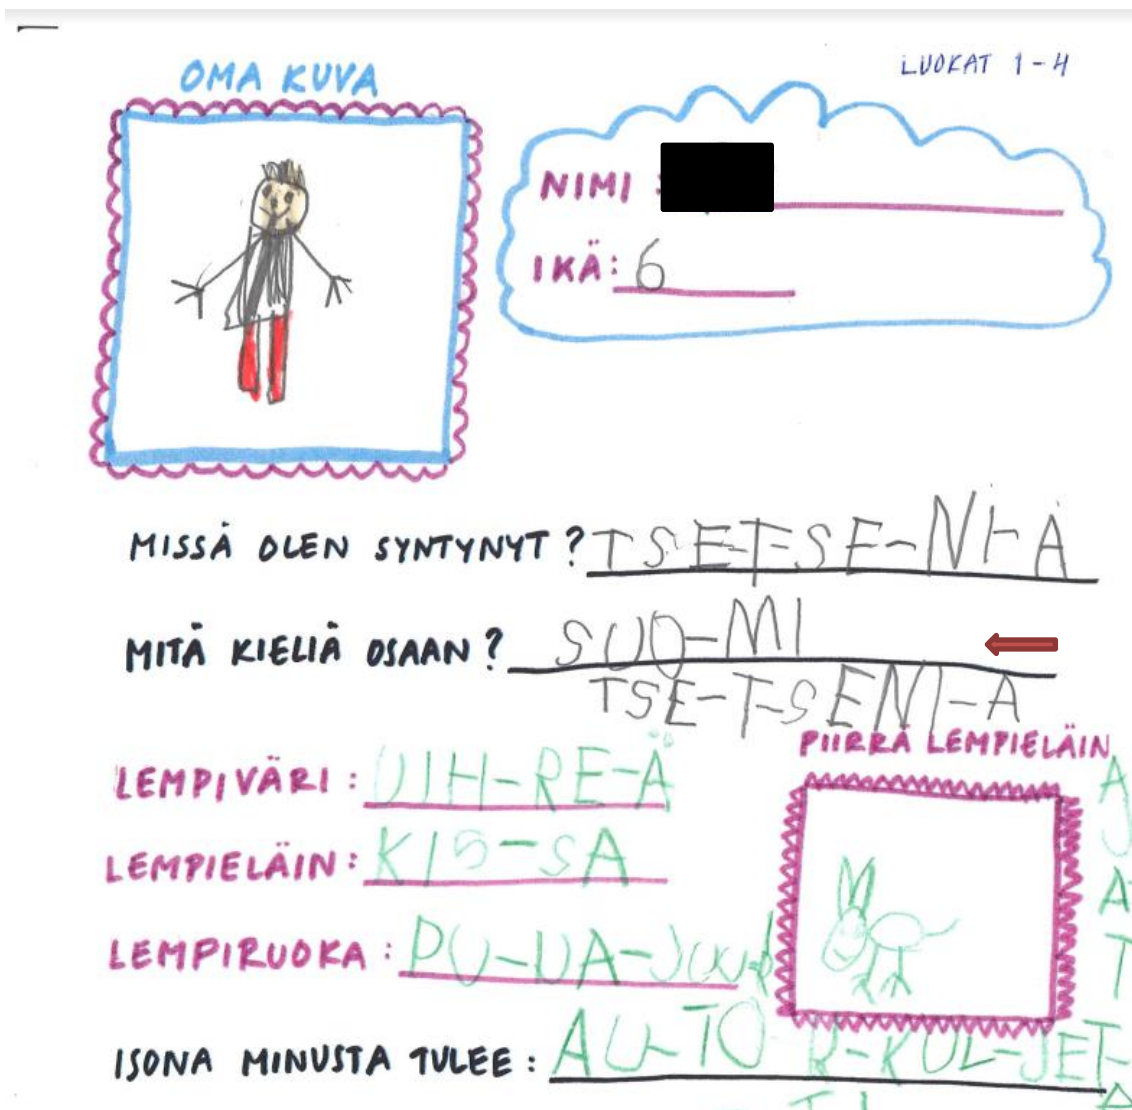 OMA KUVA
LUOKAT 1-4
NIMI :
IKÄ: 6
MISSÄ OLEN SYNTYNYT? TSE-T-SE-NI-A
MITÄ KIELIÄ OSAAN? SUO-MI
TSE-T-SENI-A
LEMPIVÄRI: UIH-RE-Ä
LEMPIELÄIN: KIS-SA
LEMPIRUOKA: PU-UA-
PIIRRÄ LEMPIELÄIN
ISONA MINUSTA TULEE: AU-TO R-KUL-JET-